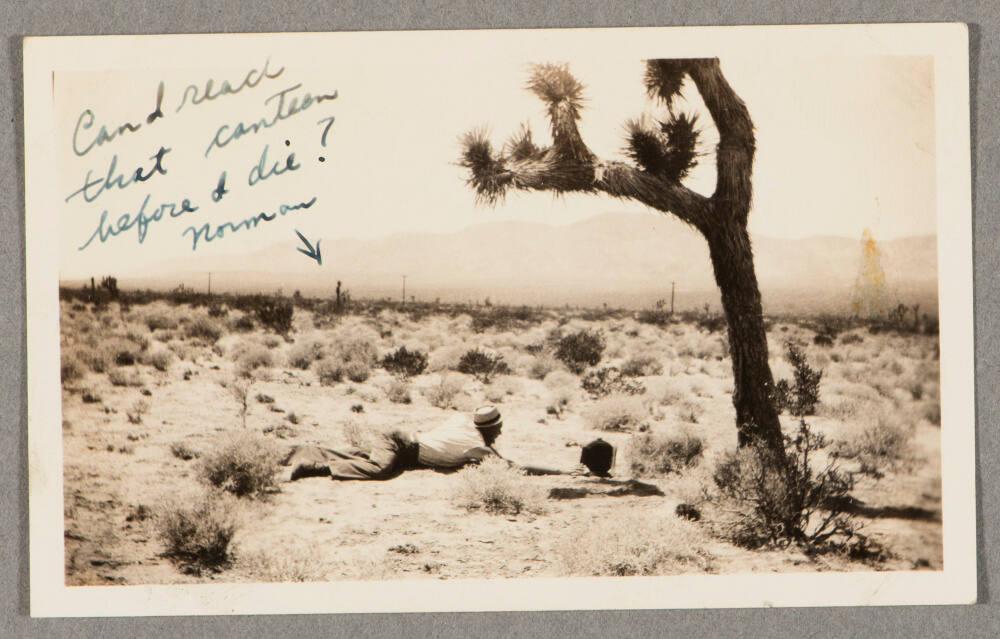 Can I reach
that canteen
before I die?
Norman